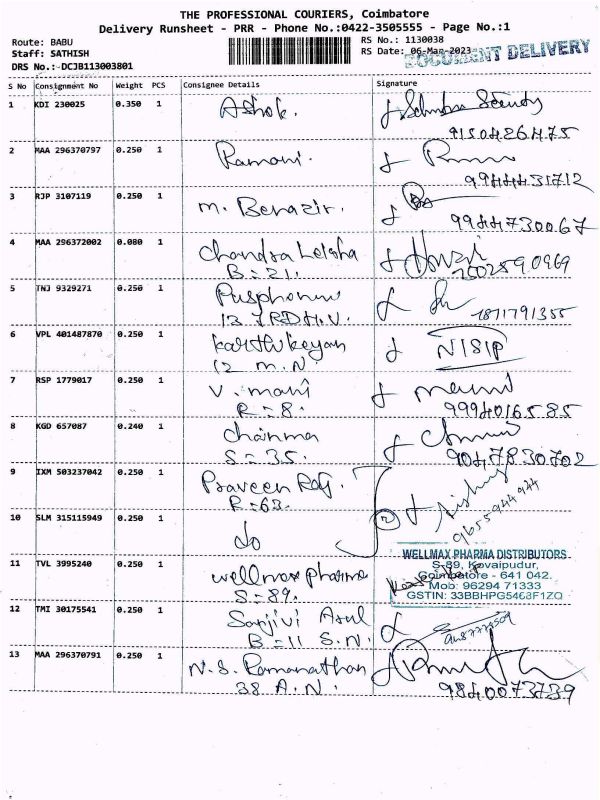 THE PROFESSIONAL COURIERS, Coimbatore
Delivery Runsheet - PRR - Phone No.:0422-3505555 - Page No.:1
Route: BABU
RS No.: 1130038
Staff: SATHISH
RS Date: 06-Mar-2023
DOCUMENT DELIVERY
DRS No.:-DCJB113003801
S No Consignment No Weight PCS Consignee Details Signature
1 KDI 230025 0.350 1 Ashok.
9150426475
2 MAA 296370797 0.250 1 Ramani.
9944431712
3 RJP 3107119 0.250 1 M. Benazir.
9944730067
4 MAA 296372002 0.080 1 Chandra Leksha
B = 21.
5 TNJ 9329271 0.250 1
1871791355
6 VPL 401487870 0.250 1 Karthikeyan
12 M.N.
7 RSP 1779017 0.250 1 V. mani mani
R = 8. 9994016585
8 KGD 657087 0.240 1 Chinma
S = 35. 9047830702
9 IXM 503237042 0.250 1 Praveen Raj.
R = 63. 9655944944
10 SLM 315115949 0.250 1 do
WELLMAX PHARMA DISTRIBUTORS
11 TVL 3995240 0.250 1 wellmax pharma
S = 89.
S-89, Kovaipudur,
Coimbatore - 641 042.
Mob: 96294 71333
GSTIN: 33BBHPG5463F1ZQ
12 TMI 30175541 0.250 1 Sanjivi Arul
B = 11 S.N.
13 MAA 296370791 0.250 1 N.S. Ramanathan
38 A.N. 9840073739